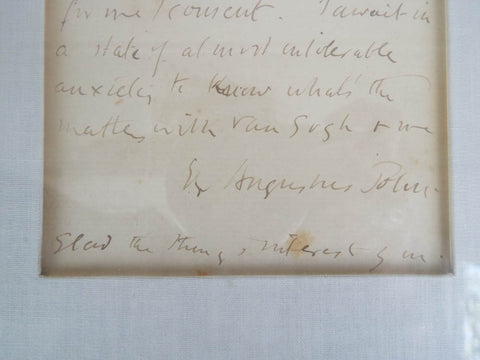 for me I consent. I await in
a state of almost intolerable
anxiety to know what's the
matter with Van Gogh & me
Augustus John.
Glad the things interest you.